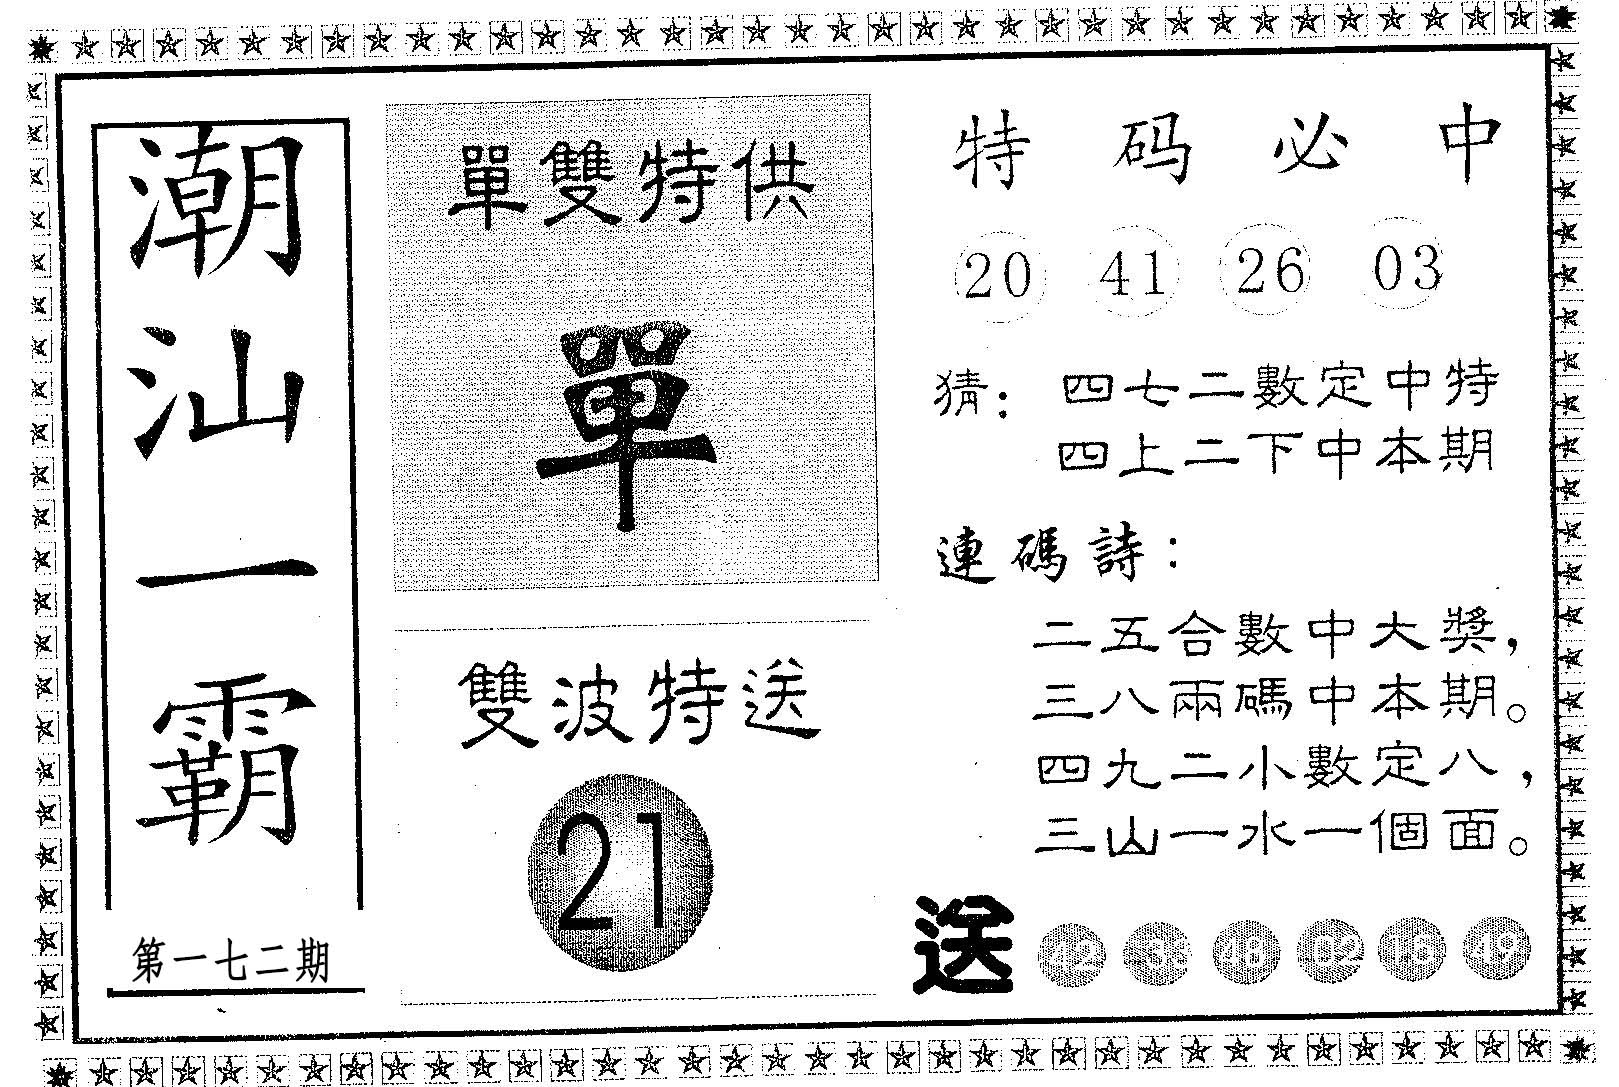 潮汕一霸
第一七二期
單雙特供
單
雙波特送
21
特码必中
20 41 26 03
猜：四七二數定中特
四上二下中本期
連碼詩：
二五合數中大獎，
三八兩碼中本期。
四九二小數定八，
三山一水一個面。
送 42 48 02 16 49